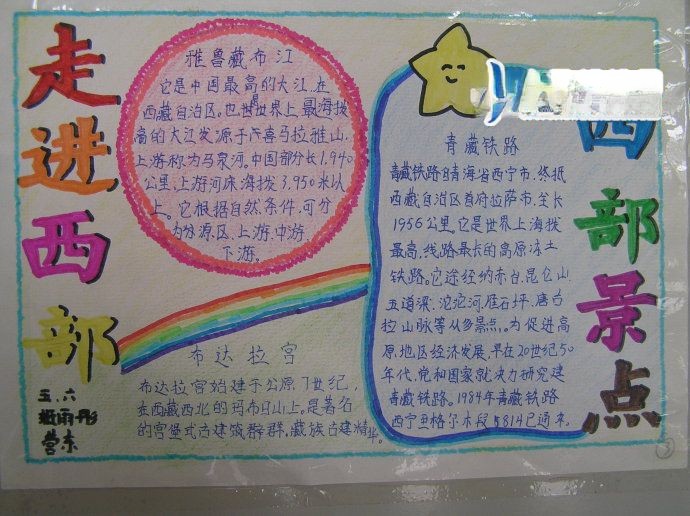 走进西部
雅鲁藏布江
它是中国最高的大江,在
西藏自治区。也世世界上最海拔
高的大江发源于喜马拉雅山,
上游称为马泉河。中国部分长1.940
公里、上游河床海拔3.950米以
上。它根据自然条件,可分
为分源区、上游、中游、
下游。
布达拉宫
布达拉宫始建于公原7世纪,
在西藏西北的玛布日山上。是著名
的宫堡式古建筑群群,藏族古建精华。
五、六
雨彤
西部景点
青藏铁路
青藏铁路青海省西宁市,终抵
西藏自治区首府拉萨市,全长
1956公里。它是世界上海拔
最高,线路最长的高原冻土
铁路。它途经纳赤台、昆仑山
五道梁、沱沱河、雁石坪、唐古
拉山脉等从多景点。为促进高
原地区经济发展,早在20世纪50
年代,党和国家就决力研究建
青藏铁路。1984年青藏铁路
西宁至格尔木段5814已通来。